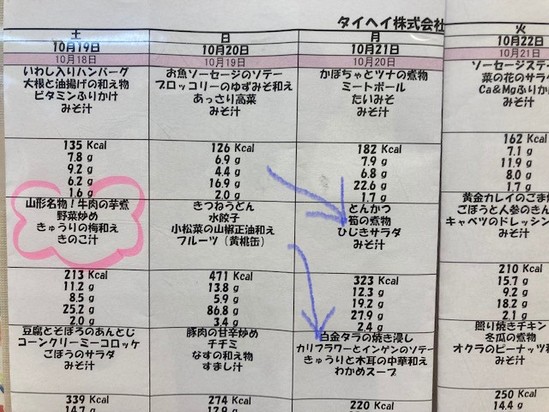 タイヘイ株式会社
土 日 月 火
10月19日 10月20日 10月21日 10月22日
10月18日 10月19日 10月20日 10月21日
いわし入りハンバーグ
大根と油揚げの和え物
ビタミンふりかけ
みそ汁
135 Kcal
7.8 g
9.2 g
6.2 g
1.6 g
山形名物!牛肉の芋煮
野菜炒め
きゅうりの梅和え
きのこ汁
213 Kcal
11.2 g
8.5 g
25.2 g
3.0 g
豆腐とそぼろのあんとじ
コーンクリーミーコロッケ
ごぼうのサラダ
みそ汁
339 Kcal
お魚ソーセージのソテー
ブロッコリーのゆずみそ和え
あっさり高菜
みそ汁
126 Kcal
6.9 g
4.4 g
16.9 g
2.0 g
きつねうどん
水餃子
小松菜の山椒正油和え
フルーツ(黄桃缶)
471 Kcal
13.8 g
5.9 g
86.8 g
3.4 g
豚肉の甘辛炒め
チヂミ
なすの和え物
すまし汁
274 Kcal
かぼちゃとツナの煮物
ミートボール
たいみそ
みそ汁
182 Kcal
7.9 g
6.8 g
22.6 g
1.7 g
とんかつ
筍の煮物
ひじきサラダ
みそ汁
323 Kcal
12.3 g
19.2 g
27.9 g
2.4 g
白金タラの焼き浸し
カリフラワーとインゲンのソテー
きゅうりと木耳の中華和え
わかめスープ
220 Kcal
ソーセージステー
菜の花のサラ
Ca&Mgふりか
みそ汁
162 Kcal
7.1 g
11.9 g
8.0 g
1.7 g
黄金カレイのごま
ごぼうと人参のきん
キャベツのドレッシン
みそ汁
210 Kcal
15.7 g
9.2 g
18.2 g
2.1 g
照り焼きチキン
冬瓜の煮物
オクラのピーナッツ
みそ汁
250 Kcal
14.4 g